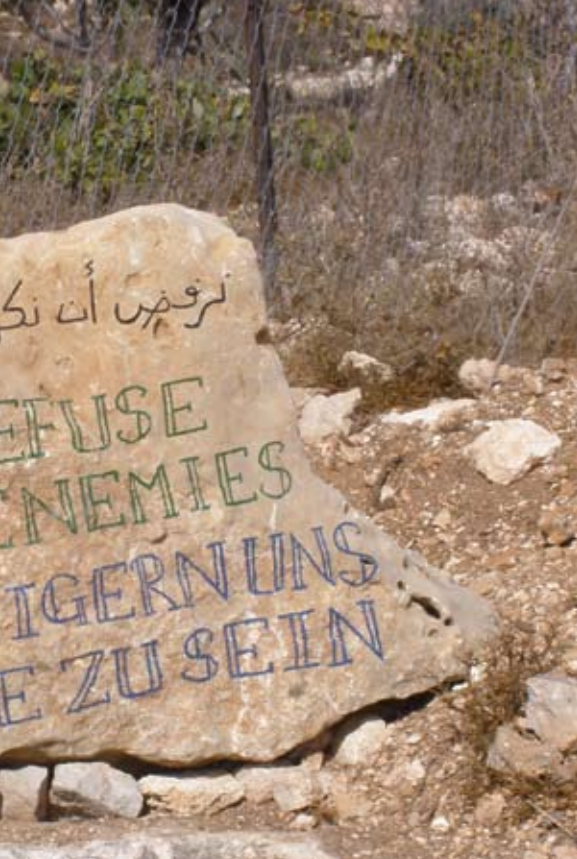 نرفض أن نكو
EFUSE
ENEMIES
IGERN UNS
E ZU SEIN